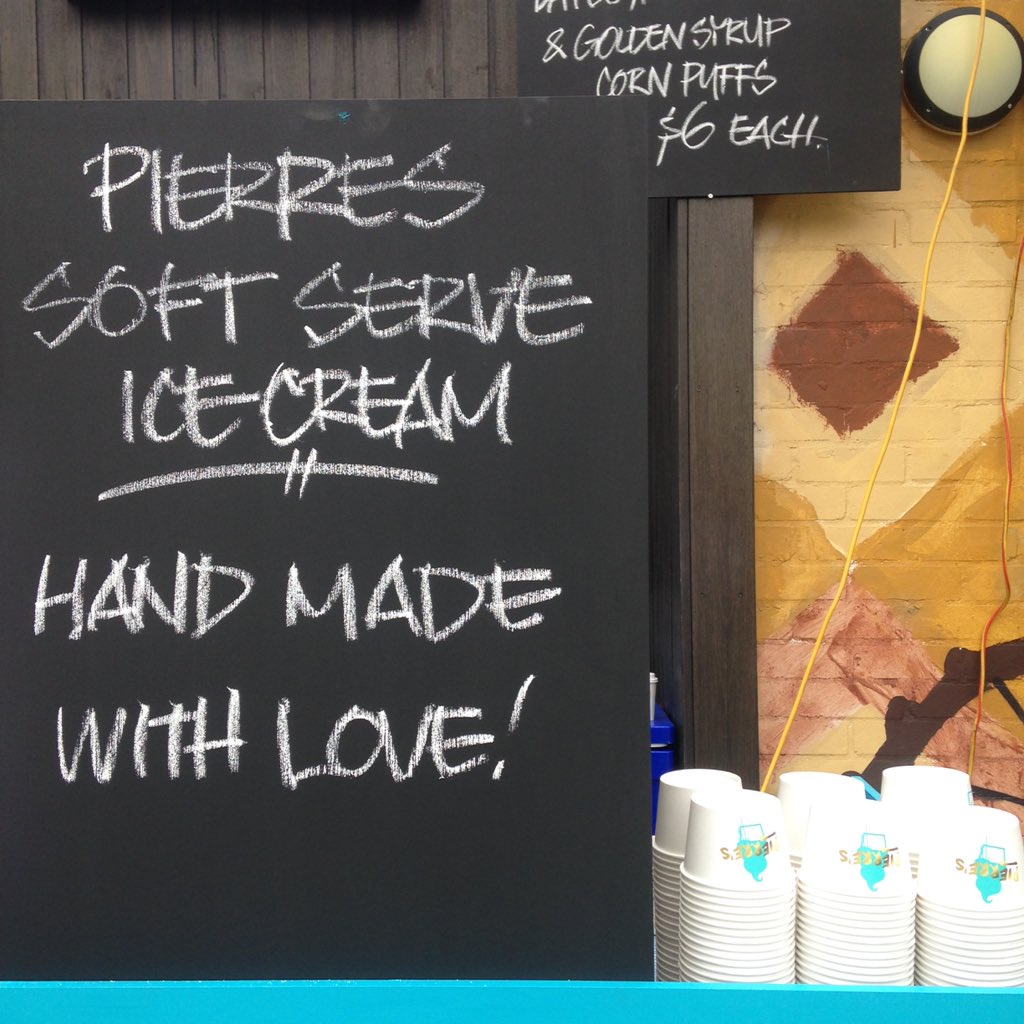 PIERRES
SOFT SERVE
ICE-CREAM
HAND MADE
WITH LOVE!
& GOLDEN SYRUP
CORN PUFFS
$6 EACH.
PIERRE'S
PIERRE'S
PIERRE'S